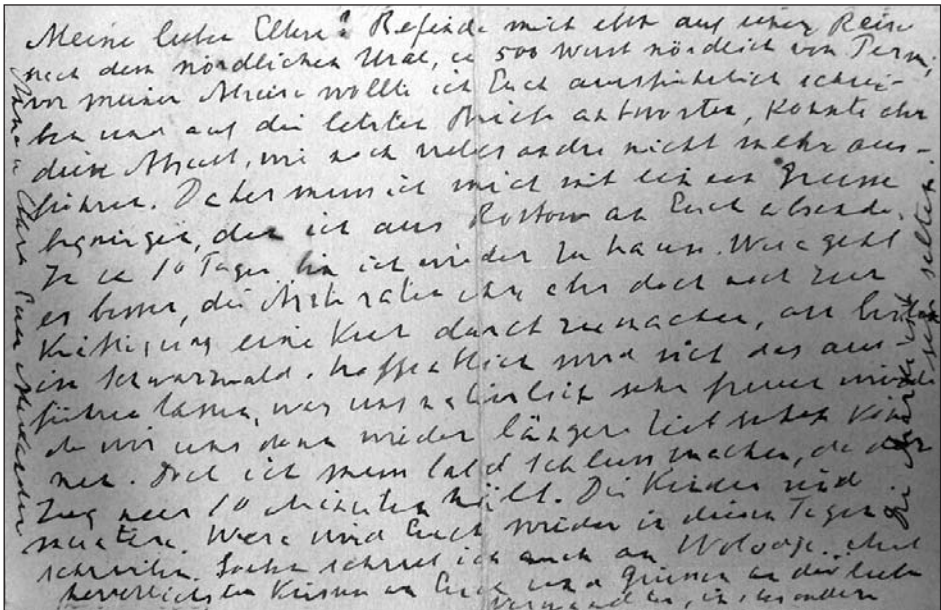 Meine lieben Eltern! Befinde mich eben auf einer Reise
nach dem nördlichen Ural, ca 500 Werst nördlich von Perm,
vor meiner Abreise wollte ich Euch ausführlich schrei-
ben und auf die letzten Briefe antworten, konnte aber
diese Absicht, wie noch vieles andre nicht mehr aus-
führen. Daher muss ich mich mit einem Grusse
begnügen, den ich aus Rostow an Euch absende.
In ca 10 Tagen bin ich wieder zu hause. Wera geht
es besser, die Ärzte raten ihr aber doch noch zur
Kräftigung eine Kur durchzumachen, am besten
im Schwarzwald. Hoffentlich wird sich das aus-
führen lassen, was uns natürlich sehr freuen würde
da wir uns dann wieder längere Zeit sehen kön
nen. Doch ich muss bald Schluss machen, da der
Zug nur 10 Minuten hält. Die Kinder sind
munter. Wera wird Euch wieder in diesen Tagen
schreiben. Soeben schrieb ich auch an Wolodja. Mit
herzlichsten Küssen an Euch und Grüssen an die lieben
Verwandten, insbesondere
Anna u Clara Euer Alexander